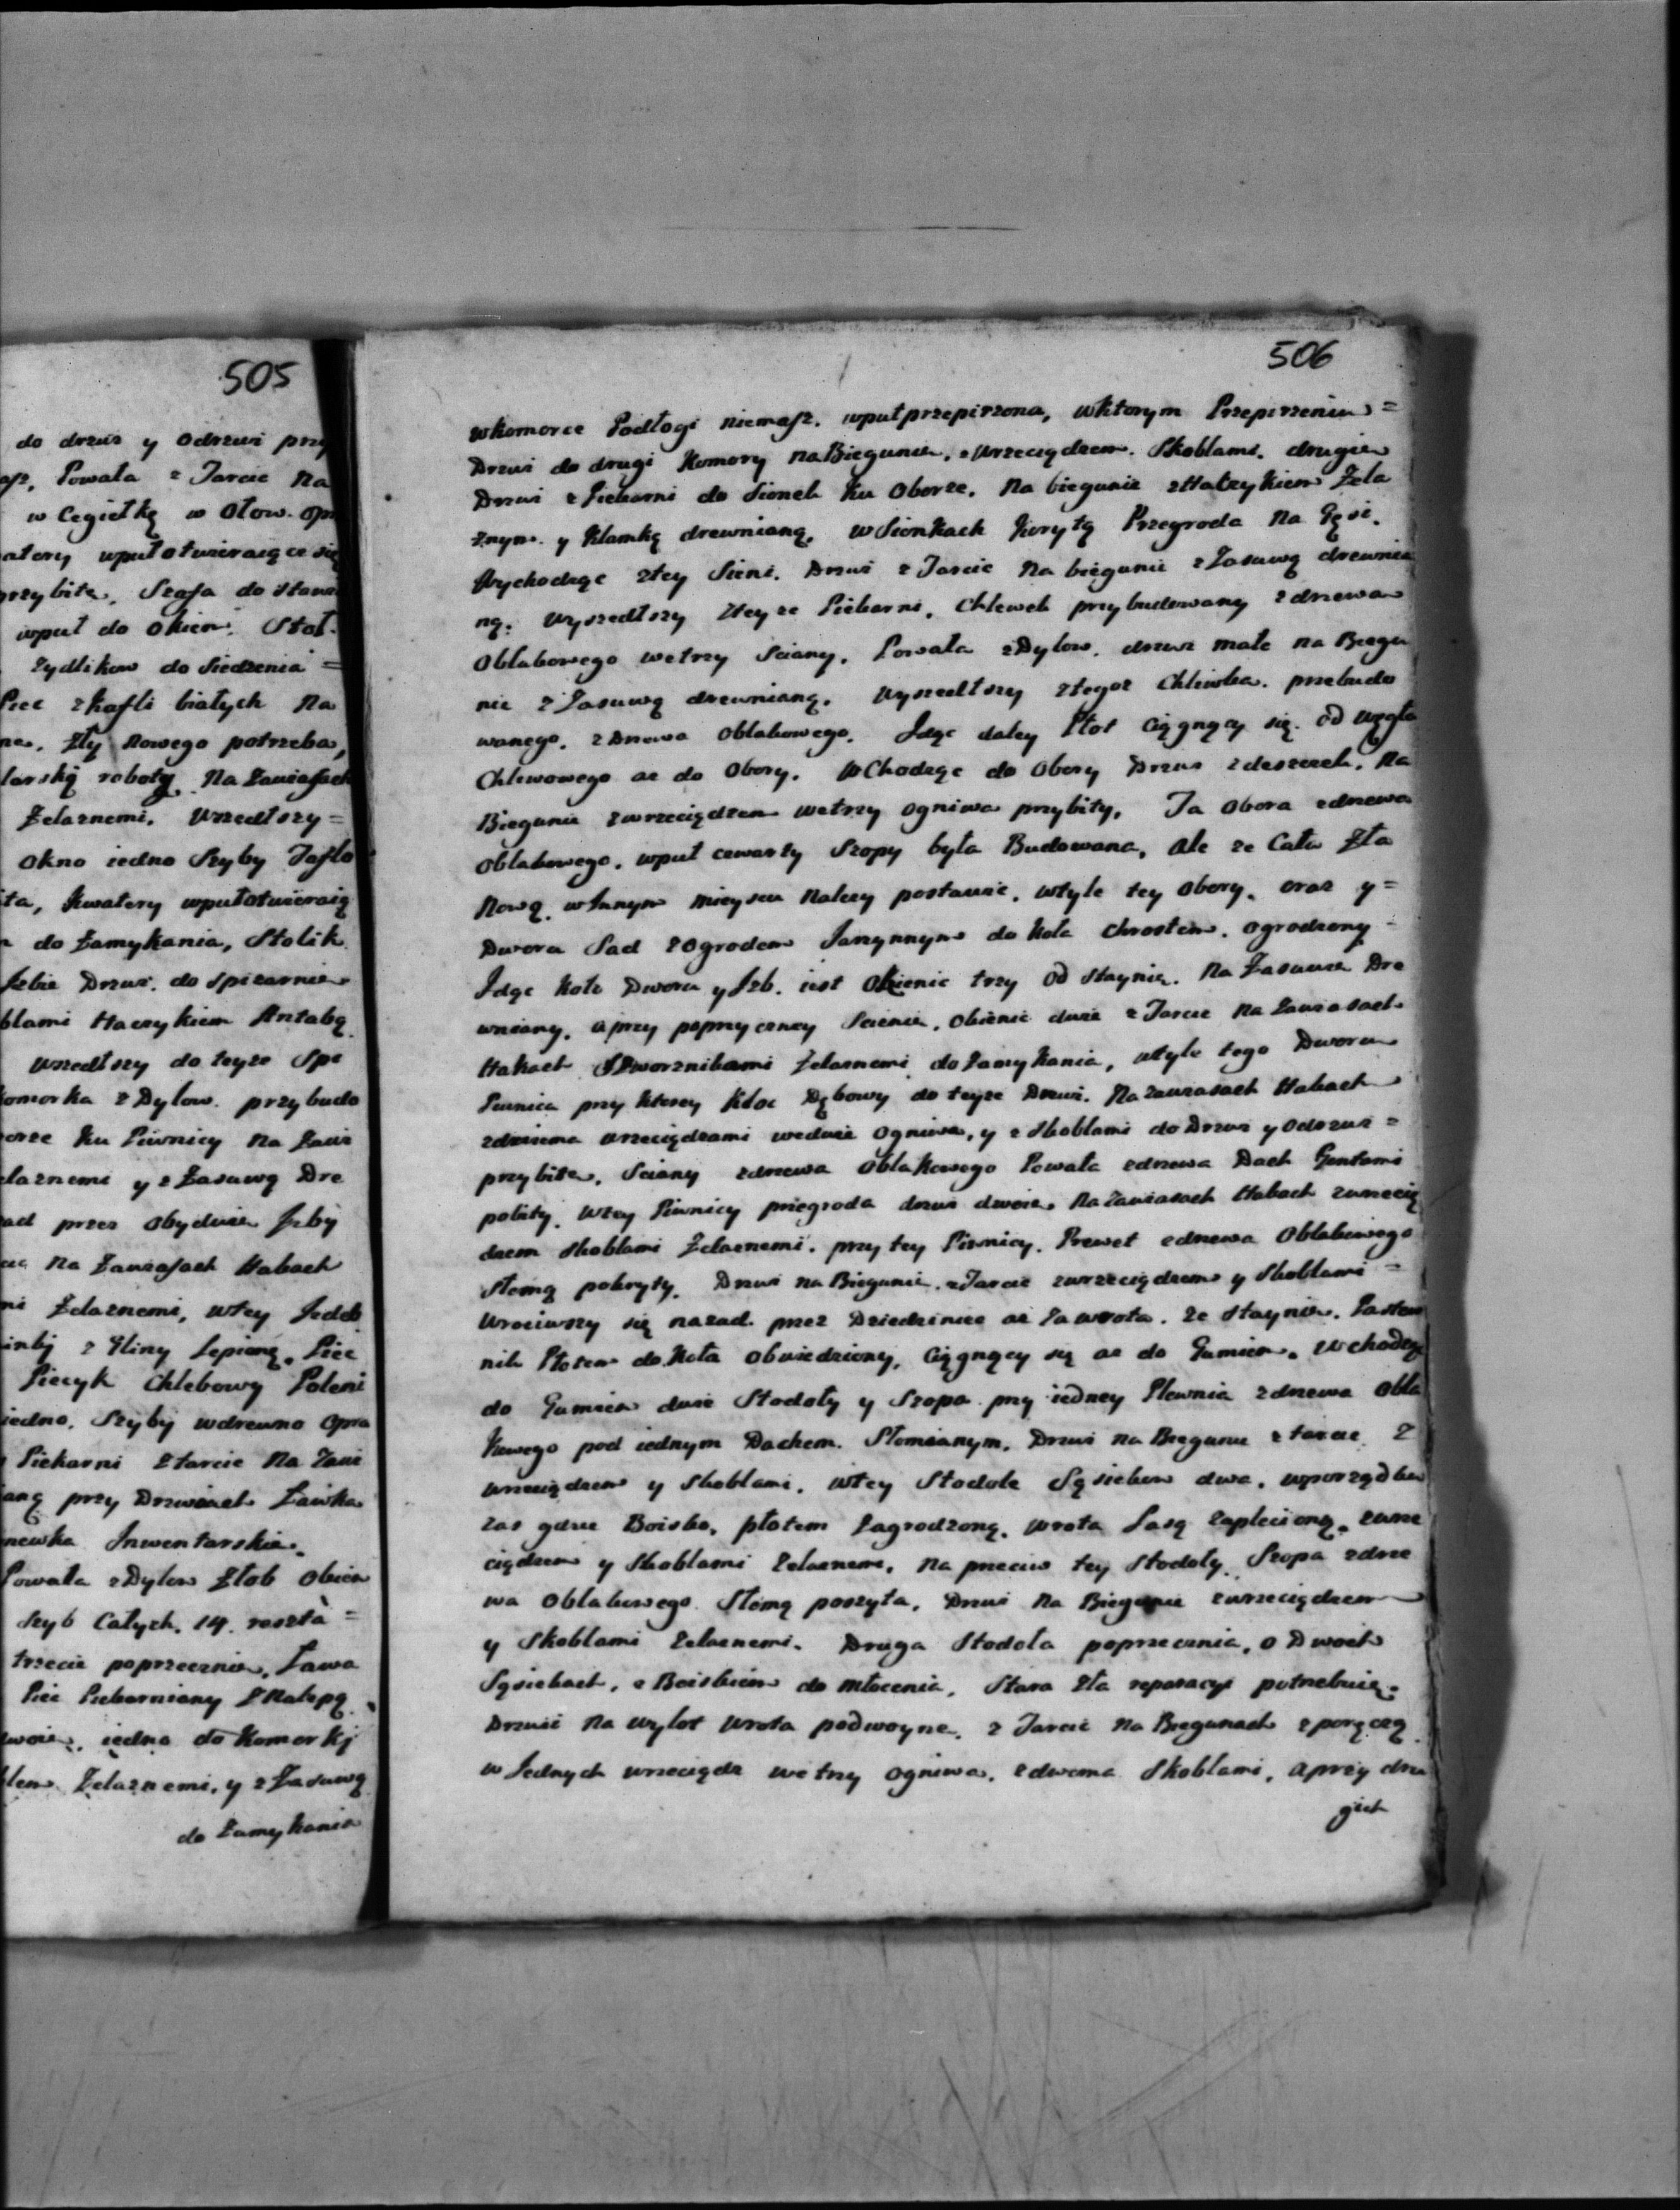 505
do drzwi y Odrzwi przy
asz, Powała z Tarcic Na
w Cegiełkę w Ołow. opr
atery wpuł otwieraiące się
przybite, Szafa do Staw
wpuł do Okien. Stoł.
Zydlikow do Siedzenia =
Piec z kafli białych Na
ne, zły Nowego potrzeba,
larską robotą Na Zawiasach
Zelaznemi, Wszedłszy =
Okno iedno Szyby Taflo
ita, Kwatery wpuł otwieraią
do Zamykania, Stolik
Izbie Drzwi do Spizarnie
blami Haczykiem Antabą
Wszedłszy do teyze Spi
omorka z Dylow przybudo
orze Ku Piwnicy Na Zawi
elaznemi y z Zasuwą Dre
ad przez Obydwie Izby
cic Na Zawiasach Hakach
mi Zelaznemi, wtey Izdeb
z Gliny Lepioną. Piec
Piecyk Chlebowy Poleni
iedno, Szyby wdrewno Opra
Piekarni z tarcic Na Zawi
aną przy Drzwiach Ławka
newka Inwentarskie.
Powała z Dylow Złob Okien
Szyb Całych. 14. reszta =
trzecie poprzecznie, Ława
Piec Piekarniany z Nalepą
dwoie, iedno do Komorki
blem Zelaznemi, y z Zasuwą
do Zamykania
506
wkomorce Podłogi niemasz. wpuł przepirzona, wktorym Przepirzeniu =
Drzwi do drugi Komory na Biegunie, z Wrzeciądzem. Skoblami. drugie
Drzwi z Piekarni do Sionek Ku Oborze. Na biegunie z Haczykiem Zela
znym. y Klamką drewnianą. W Sionkach Koryta Przegroda Na Gęsi.
Wychodząc ztey Sieni. Drzwi z Tarcic Na biegunie z Zasuwą drewnia
ną. Wyszedłszy zteyze Piekarni, Chlewek przybudowany z drzewa
Obłakowego wetrzy Sciany. Powała z Dylow. drzwi małe na Biegu
nie z Zasuwą drewnianą. Wyszedłszy ztegoz Chliwka. przebudo
wanego. z Drzewa Obłakowego. Idąc daley Płot Ciągnący się. od węgła
Chlewowego az do Obory. WChodząc do Obory Drzwi z deszczek. Na
Biegunie zwrzeciądzem wetrzy Ogniwa przybity. Ta Obora z drzewa
Obłakowego. wpuł czwarty Szopy była Budowana, Ale ze Cała Zła
Nową w Innym Mieyscu Nalezy postawic. wtyle tey Obory. oraz y =
Dwora Sad z Ogrodem Jarzynnym do Koła Chrostem. ogrodzony =
Idąc Koło Dworu y Izb. iest Okienic trzy Od Staynie. Na Zasuwie Dre
wniany. a przy poprzyczney Scienie. Okienic dwie z Tarcic Na Zawiasach
Hakach Sworznikami Zelaznemi do Zamykania, wtyle tego Dworu
Piwnica przy Ktorey Kłoc Dębowy do teyze Drzwi. Na zawiasach Hakach
zdwiema wrzeciądzami wedwie Ogniwa, y z Skoblami do Drzwi y Odrzwi =
przybite, Sciany zdrzewa Obłakowego Powała zdrzewa Dach Gontami
pobity. wtey Piwnicy przegroda drzwi dwoie, Na Zawiasach Hakach zwrzecią
dzem Skoblami Zelaznemi. przy tey Piwnicy. Prewet zdrzewa Obłakowego
Słomą pokryty. Drzwi na Biegunie. z Tarcic zwrzeciądzem y Skoblami =
Wrociwszy się nazad. przez Dziedziniec az Za wrota. ze Staynie. Pastew
nik Płotem do Koła Obwiedziony, Ciągnący się az do Gumien. Wchodząc
do Gumien dwie Stodoły y Szopa przy iedney Plewnia zdrzewa Obła
kowego pod iednym Dachem. Słomianym. Drzwi na Biegunie z tarcic z
wrzeciądzem y Skoblami. wtey Stodole Sąsiekow dwa. wporządku
zas gdzie Boisko, płotem zagrodzoną. wrota Lasą zaplecioną. zwrze
ciądzem y Skoblami Zelaznemi. Na przeciw tey Stodoły Szopa zdrze
wa Obłakowego Słomą poszyta. Drzwi Na Biegunie zwrzeciądzem
y Skoblami Zelaznemi. Druga Stodoła poprzecznia, o Dwoch
Sąsiekach, z Boiskiem do młocenia. Stara Zła reparacyi potrzebuie.
Drzwi Na Wylot Wrota podwoyne. z Tarcic Na Biegunach z poręczą
w Iednych wrzeciądz wetrzy Ogniwa. zdwoma Skoblami, a przy dru
gich